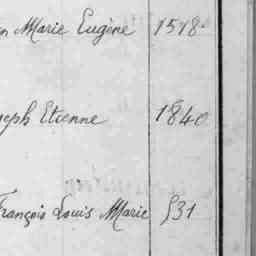 n Marie Eugène 1518
seph Etienne 1840
François Louis Marie 531